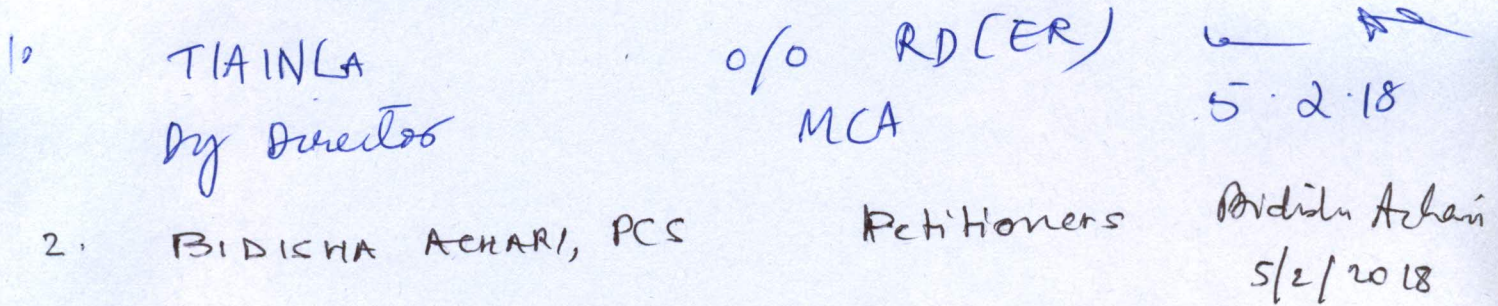 1. TIAINLA o/o RD (ER)
Dy Director MCA 5.2.18
2. BIDISHA ACHARI, PCS Petitioners Bidisha Achari
5/2/2018